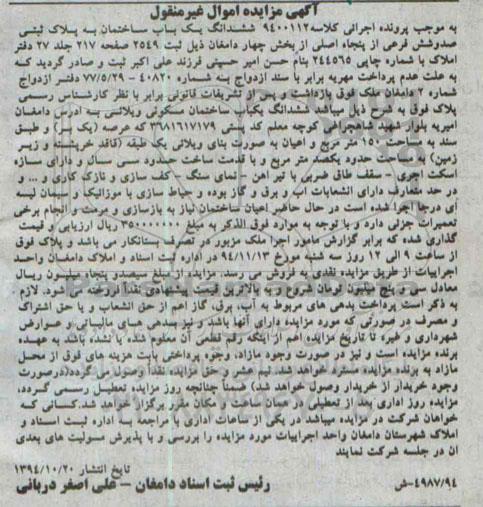 آگهی مزایده اموال غیرمنقول
به موجب پرونده اجرائی کلاسه ۹۴۰۰۱۱۲ ششدانگ یک باب ساختمان به پلاک ثبتی
صدوشش فرعی از پنجاه اصلی از بخش چهار دامغان ذیل ثبت ۲۵۴۹ صفحه ۲۱۷ جلد ۲۷ دفتر
املاک با شماره چاپی ۲۴۴۵۶۵ بنام حسن امیر حسینی فرزند علی اکبر ثبت و صادر گردید که
به علت عدم پرداخت مهریه برابر با سند ازدواج به شماره ۴۰۸۲۰ - ۷۷/۵/۲۹ دفتر ازدواج
شماره ۲ دامغان ملک فوق بازداشت و پس از تشریفات قانونی برابر با نظر کارشناس رسمی
پلاک فوق به شرح ذیل میباشد ششدانگ یکباب ساختمان مسکونی ویلائی به ادرس دامغان
امیریه بلوار شهید شاهچراغی کوچه معلم کد پستی ۳۶۸۱۶۱۷۱۷۹ که عرصه (یک بر) و طبق
سند به مساحت ۱۵۰ متر مربع و اعیان به صورت بنای ویلائی یک طبقه (فاقد خرپشته و زیر
زمین) به مساحت حدود یکصد متر مربع و با قدمت ساخت حدود سی سال و دارای سازه
اسکلت اجری - سقف طاق ضربی با تیر اهن - نمای سنگ - کف سازی و نازک کاری و ... و
در حد متعارف دارای انشعابات اب و برق و گاز بوده و حیاط سازی با موزائیک و سیمان لیسه
ای درجا اجرا شده است در حال حاضر اعیان ساختمان نیاز به بازسازی و مرمت و انجام برخی
تعمیرات جزئی دارد و با توجه به موارد فوق الذکر به مبلغ ۳۵۰۰۰۰۰۰۰ ریال ارزیابی و قیمت
گذاری شده که برابر گزارش مامور اجرا ملک مزبور در تصرف بستانکار می باشد و پلاک فوق
از ساعت ۹ الی ۱۲ روز سه شنبه مورخ ۹۴/۱۱/۱۳ در اداره ثبت اسناد و املاک دامغان واحد
اجرائیات از طریق مزایده نقدی به فروش می رسد. مزایده از مبلغ سیصدو پنجاه میلیون ریال
معادل سی و پنج میلیون تومان شروع و به بالاترین قیمت پیشنهادی نقدا فروخته می شود. لازم
به ذکر است پرداخت بدهی های مربوط به آب، برق، گاز اعم از حق انشعاب و یا حق اشتراک
و مصرف در صورتی که مورد مزایده دارای آنها باشد و نیز بدهی های مالیاتی و عوارض
شهرداری و غیره تا تاریخ مزایده اعم از اینکه رقم قطعی آن معلوم شده یا نشده باشد به عهده
برنده مزایده است و نیز در صورت وجود مازاد، وجوه پرداختی بابت هزینه های فوق از محل
مازاد به برنده مزایده مسترد خواهد شد. نیم عشر و حق مزایده نقدا وصول می گردد(درصورت
وجود خریدار از خریدار وصول خواهد شد) ضمناً چنانچه روز مزایده تعطیل رسمی گردد،
مزایده روز اداری بعد از تعطیلی در همان ساعت و مکان مقرر برگزار خواهد شد.کسانی که
خواهان شرکت در مزایده میباشد در یکی از ساعات اداری با مراجعه به اداره ثبت اسناد و
املاک شهرستان دامغان واحد اجرائیات مورد مزایده را بررسی و با پذیرش مسولیت های بعدی
ان در جلسه شرکت نمایند
تاریخ انتشار ۱۳۹۴/۱۰/۲۰
رئیس ثبت اسناد دامغان – علی اصغر دربانی
۴۹۸۷/۹۴-ش